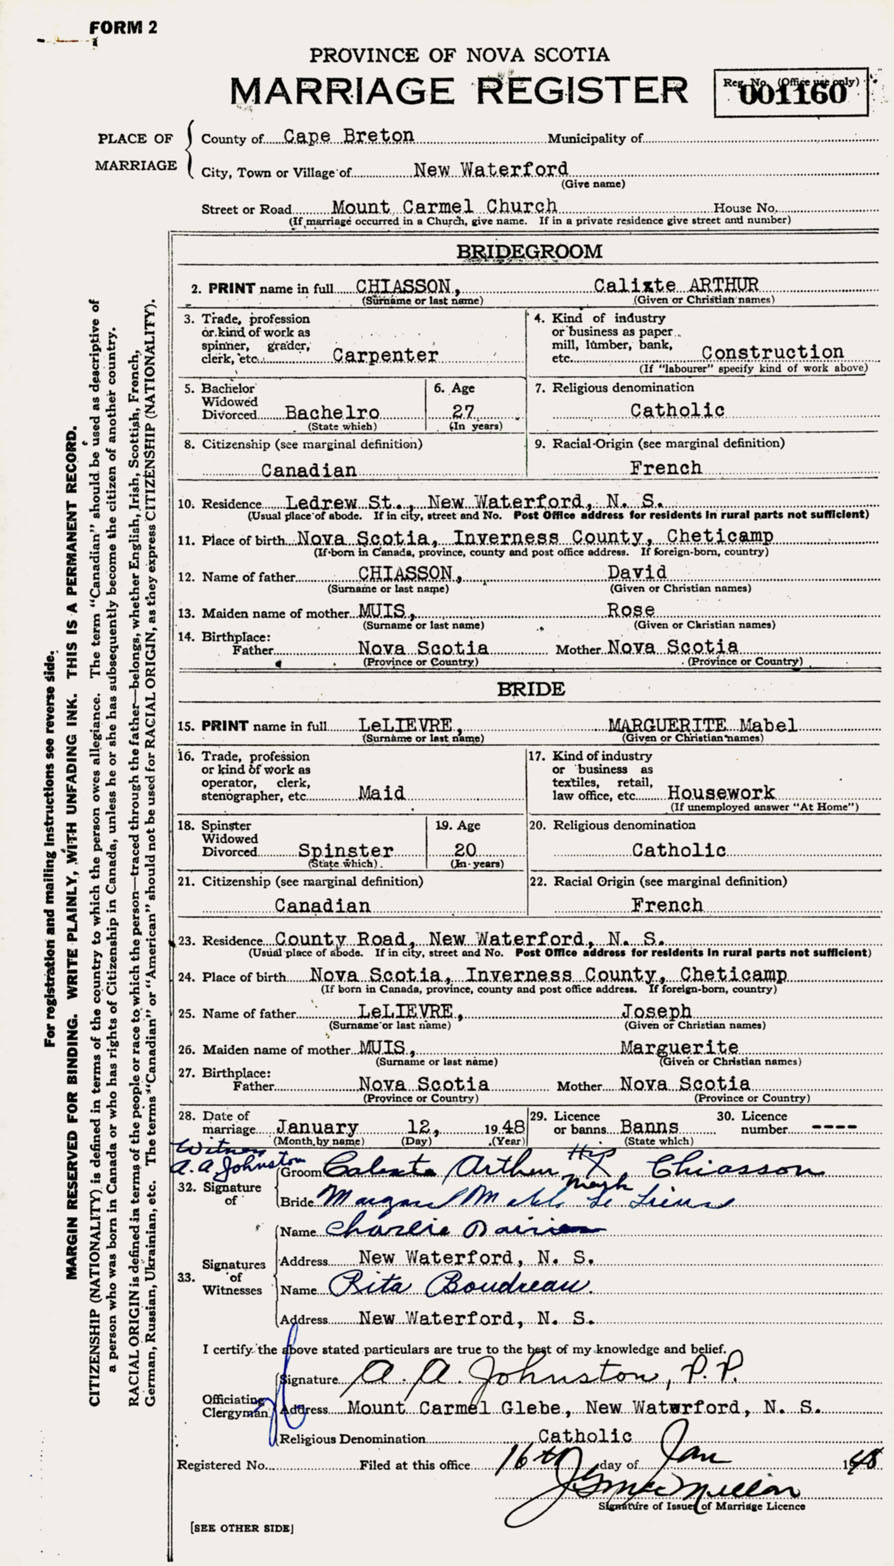 FORM 2
PROVINCE OF NOVA SCOTIA
MARRIAGE REGISTER
Reg. No. (Office use only)
001160
PLACE OF MARRIAGE
County of Cape Breton Municipality of
City, Town or Village of New Waterford
(Give name)
Street or Road Mount Carmel Church House No.
(If marriage occurred in a Church, give name. If in a private residence give street and number)
BRIDEGROOM
2. PRINT name in full CHIASSON, Calixte ARTHUR
(Surname or last name) (Given or Christian names)
3. Trade, profession or kind of work as spinner, grader, clerk, etc. Carpenter
4. Kind of industry or business as paper mill, lumber, bank, etc. Construction
(If "labourer" specify kind of work above)
5. Bachelor Widowed Divorced Bachelro
(State which)
6. Age 27
(In years)
7. Religious denomination
Catholic
8. Citizenship (see marginal definition)
Canadian
9. Racial-Origin (see marginal definition)
French
10. Residence Ledrew St., New Waterford, N. S.
(Usual place of abode. If in city, street and No. Post Office address for residents in rural parts not sufficient)
11. Place of birth Nova Scotia, Inverness County, Cheticamp
(If born in Canada, province, county and post office address. If foreign-born, country)
12. Name of father CHIASSON, David
(Surname or last name) (Given or Christian names)
13. Maiden name of mother MUIS, Rose
(Surname or last name) (Given or Christian names)
14. Birthplace:
Father Nova Scotia Mother Nova Scotia
(Province or Country) (Province or Country)
BRIDE
15. PRINT name in full LeLIEVRE, MARGUERITE Mabel
(Surname or last name) (Given or Christian names)
16. Trade, profession or kind of work as operator, clerk, stenographer, etc. Maid
17. Kind of industry or business as textiles, retail, law office, etc. Housework
(If unemployed answer "At Home")
18. Spinster Widowed Divorced Spinster
(State which)
19. Age 20
(In years)
20. Religious denomination
Catholic
21. Citizenship (see marginal definition)
Canadian
22. Racial Origin (see marginal definition)
French
23. Residence County Road, New Waterford, N. S.
(Usual place of abode. If in city, street and No. Post Office address for residents in rural parts not sufficient)
24. Place of birth Nova Scotia, Inverness County, Cheticamp
(If born in Canada, province, county and post office address. If foreign-born, country)
25. Name of father LeLIEVRE, Joseph
(Surname or last name) (Given or Christian names)
26. Maiden name of mother MUIS, Marguerite
(Surname or last name) (Given or Christian names)
27. Birthplace:
Father Nova Scotia Mother Nova Scotia
(Province or Country) (Province or Country)
28. Date of marriage January 12, 1948
(Month by name) (Day) (Year)
29. Licence or banns Banns
(State which)
30. Licence number ----
Witness
A. A Johnston
32. Signature of
Groom Calixte Arthur His X Chiasson
Mark
Bride
33. Signatures of Witnesses
Name Charlie
Address New Waterford, N. S.
Name Rita Boudreau.
Address New Waterford, N. S.
I certify the above stated particulars are true to the best of my knowledge and belief.
Officiating Clergyman
Signature A. A. Johnston, P.P.
Address Mount Carmel Glebe, New Watwrford, N. S.
Religious Denomination Catholic
Registered No. Filed at this office 16th day of Jan 1948
Signature of Issuer of Marriage Licence
[SEE OTHER SIDE]
For registration and mailing instructions see reverse side.
MARGIN RESERVED FOR BINDING. WRITE PLAINLY, WITH UNFADING INK. THIS IS A PERMANENT RECORD.
CITIZENSHIP (NATIONALITY) is defined in terms of the country to which the person owes allegiance. The term "Canadian" should be used as descriptive of
a person who was born in Canada or who has rights of Citizenship in Canada, unless he or she has subsequently become the citizen of another country.
RACIAL ORIGIN is defined in terms of the people or race to which the person—traced through the father—belongs, whether English, Irish, Scottish, French,
German, Russian, Ukrainian, etc. The terms "Canadian" or "American" should not be used for RACIAL ORIGIN, as they express CITIZENSHIP (NATIONALITY).